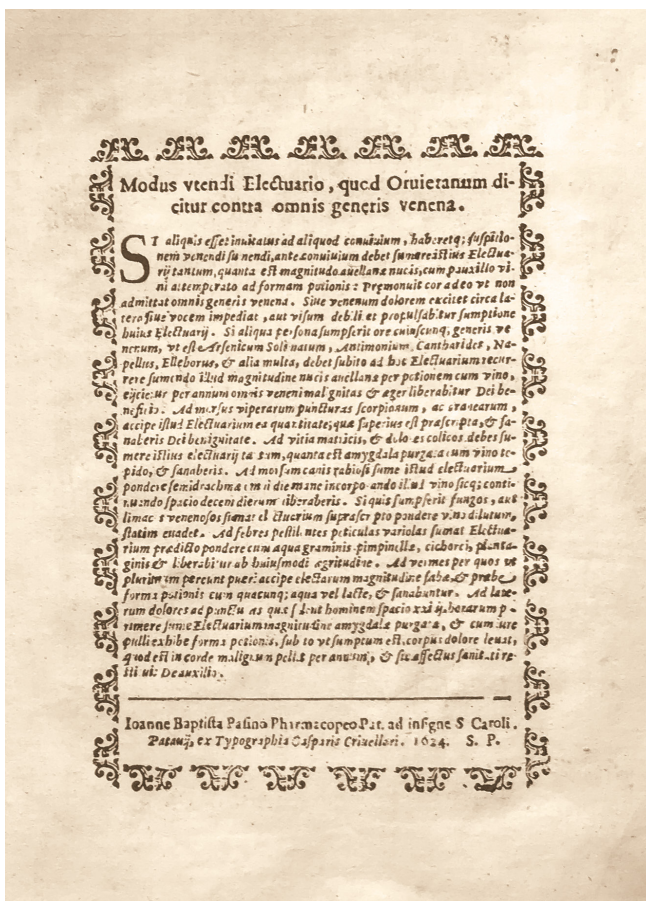 Modus vtendi Electuario, quod Oruietanum di-
citur contra omnis generis venena.
SI aliquis esset inuitatus ad aliquod conuiuium, haberetq; suspitio-
nem venendi sumendi, ante conuiuium debet sumere istius Electua-
rij tantum, quanta est magnitudo auellanæ nucis, cum pauxillo vi-
ni attemperato ad formam potionis: Præmonuit cor adeo vt non
admittat omnis generis venena. Siue venenum dolorem excitet circa la-
tero siue vocem impediat, aut visum debili et propulsabitur sumptione
huius Electuarij. Si aliqua persona sumpserit ore cuiuscunq; generis ve
nenum, vt est Arsenicum Solinatum, Antimonium, Cantharides, Na-
pellus, Elleborus, & alia multa, debet subito ad hoc Electuarium recur-
rere sumendo illud magnitudine nucis auellanæ per potionem cum vino,
eijcietur per annum omnis veneni malignitas & æger liberabitur Dei be-
neficio. Ad morsus viperarum puncturas scorpionum, ac aranearum,
accipe istud Electuarium ea quantitate, qua superius est præscripta, & sa-
naberis Dei benignitate. Ad vitia matricis, & dolores colicos debes su-
mere istius electuarij tantum, quanta est amygdala purgata cum vino te-
pido, & sanaberis. Ad morsum canis rabiosi sume istud electuarium
pondere semidrachmæ omni die mane incorporando illud vino sicq; conti-
nuando spacio decem dierum liberaberis. Si quis sumpserit fungos, aut
limaces venenosos sumat electuarium suprascripto pondere vino dilutum,
statim euadet. Ad febres pestilentes peticulas variolas sumat Electua-
rium prædicto pondere cum aqua graminis pimpinellæ, cichorei, planta-
ginis & liberabitur ab huiusmodi ægritudine. Ad vermes per quos vt
plurimum pereunt pueri accipe electarum magnitudine fabæ, & præbe
forma potionis cum quacunq; aqua vel lacte, & sanabuntur. Ad late-
rum dolores ad punctu as quæ solent hominem spacio xxiiij. horarum p-
rimere sume Electuarium magnitudine amygdalæ purgatæ, & cum iure
pulli exhibe forma potionis, subito vt sumptum est, corpus dolore leuat,
quod est in corde malignum pellit per annum, & sic affectus sanitati re-
stituitur Dei auxilio.
Ioanne Baptista Pasino Pharmacopeo Pat. ad insigne S Caroli.
Patauij, ex Typographia Gasparis Criuellari. 1624. S. P.